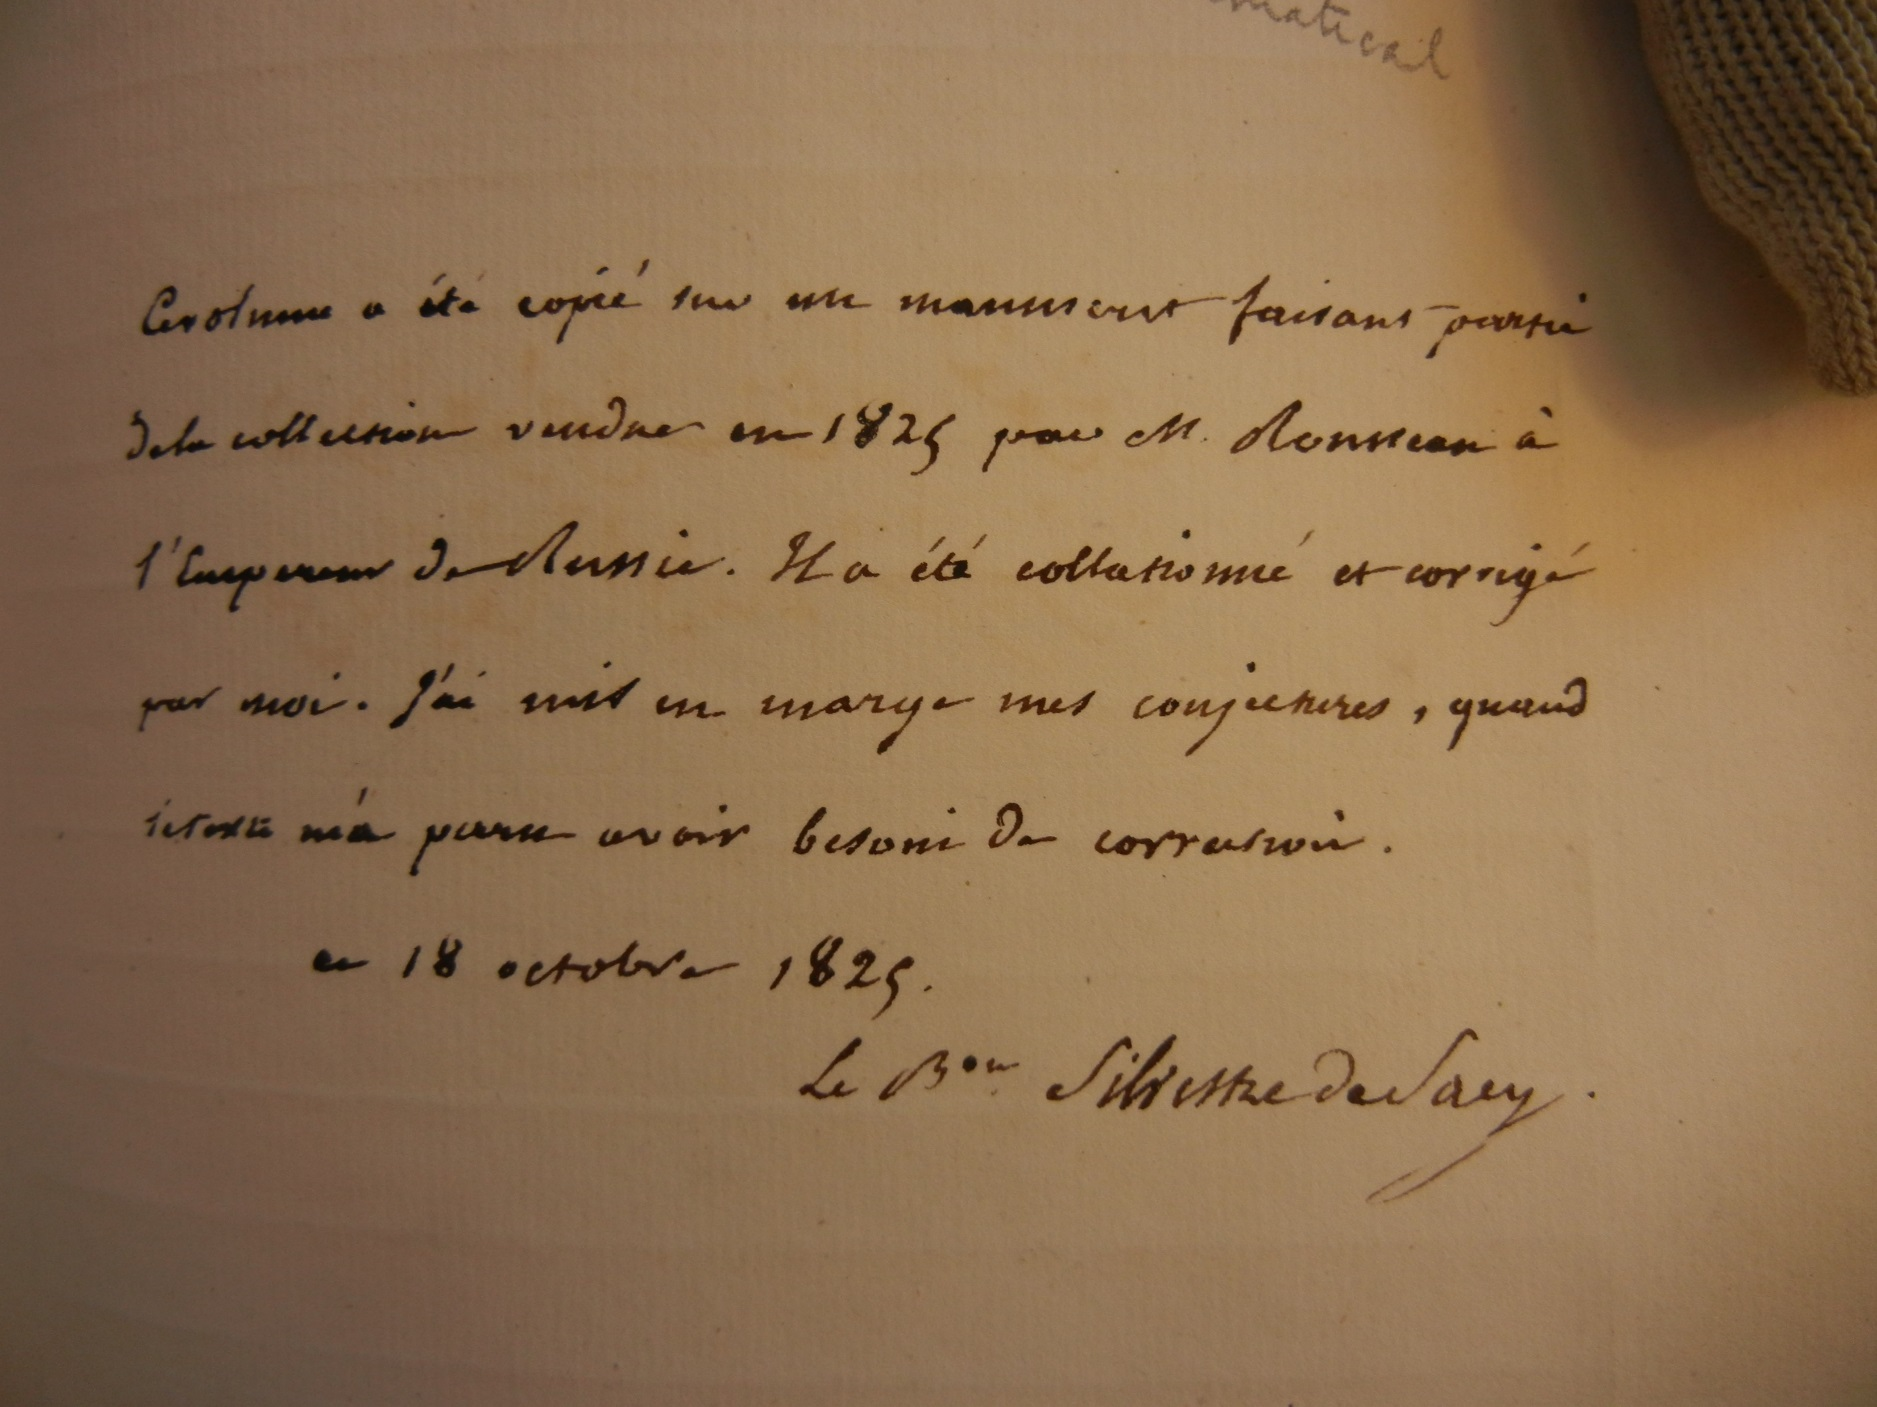 matical
Ce volume a été copié sur un manuscrit faisant partie
de la collection vendue en 1825 par M. Rousseau à
l'Empereur de Russie. Il a été collationné et corrigé
par moi. J'ai mis en marge mes conjectures, quand
le texte m'a paru avoir besoin de correction.
ce 18 octobre 1825.
Le Bon Silvestre de Sacy.